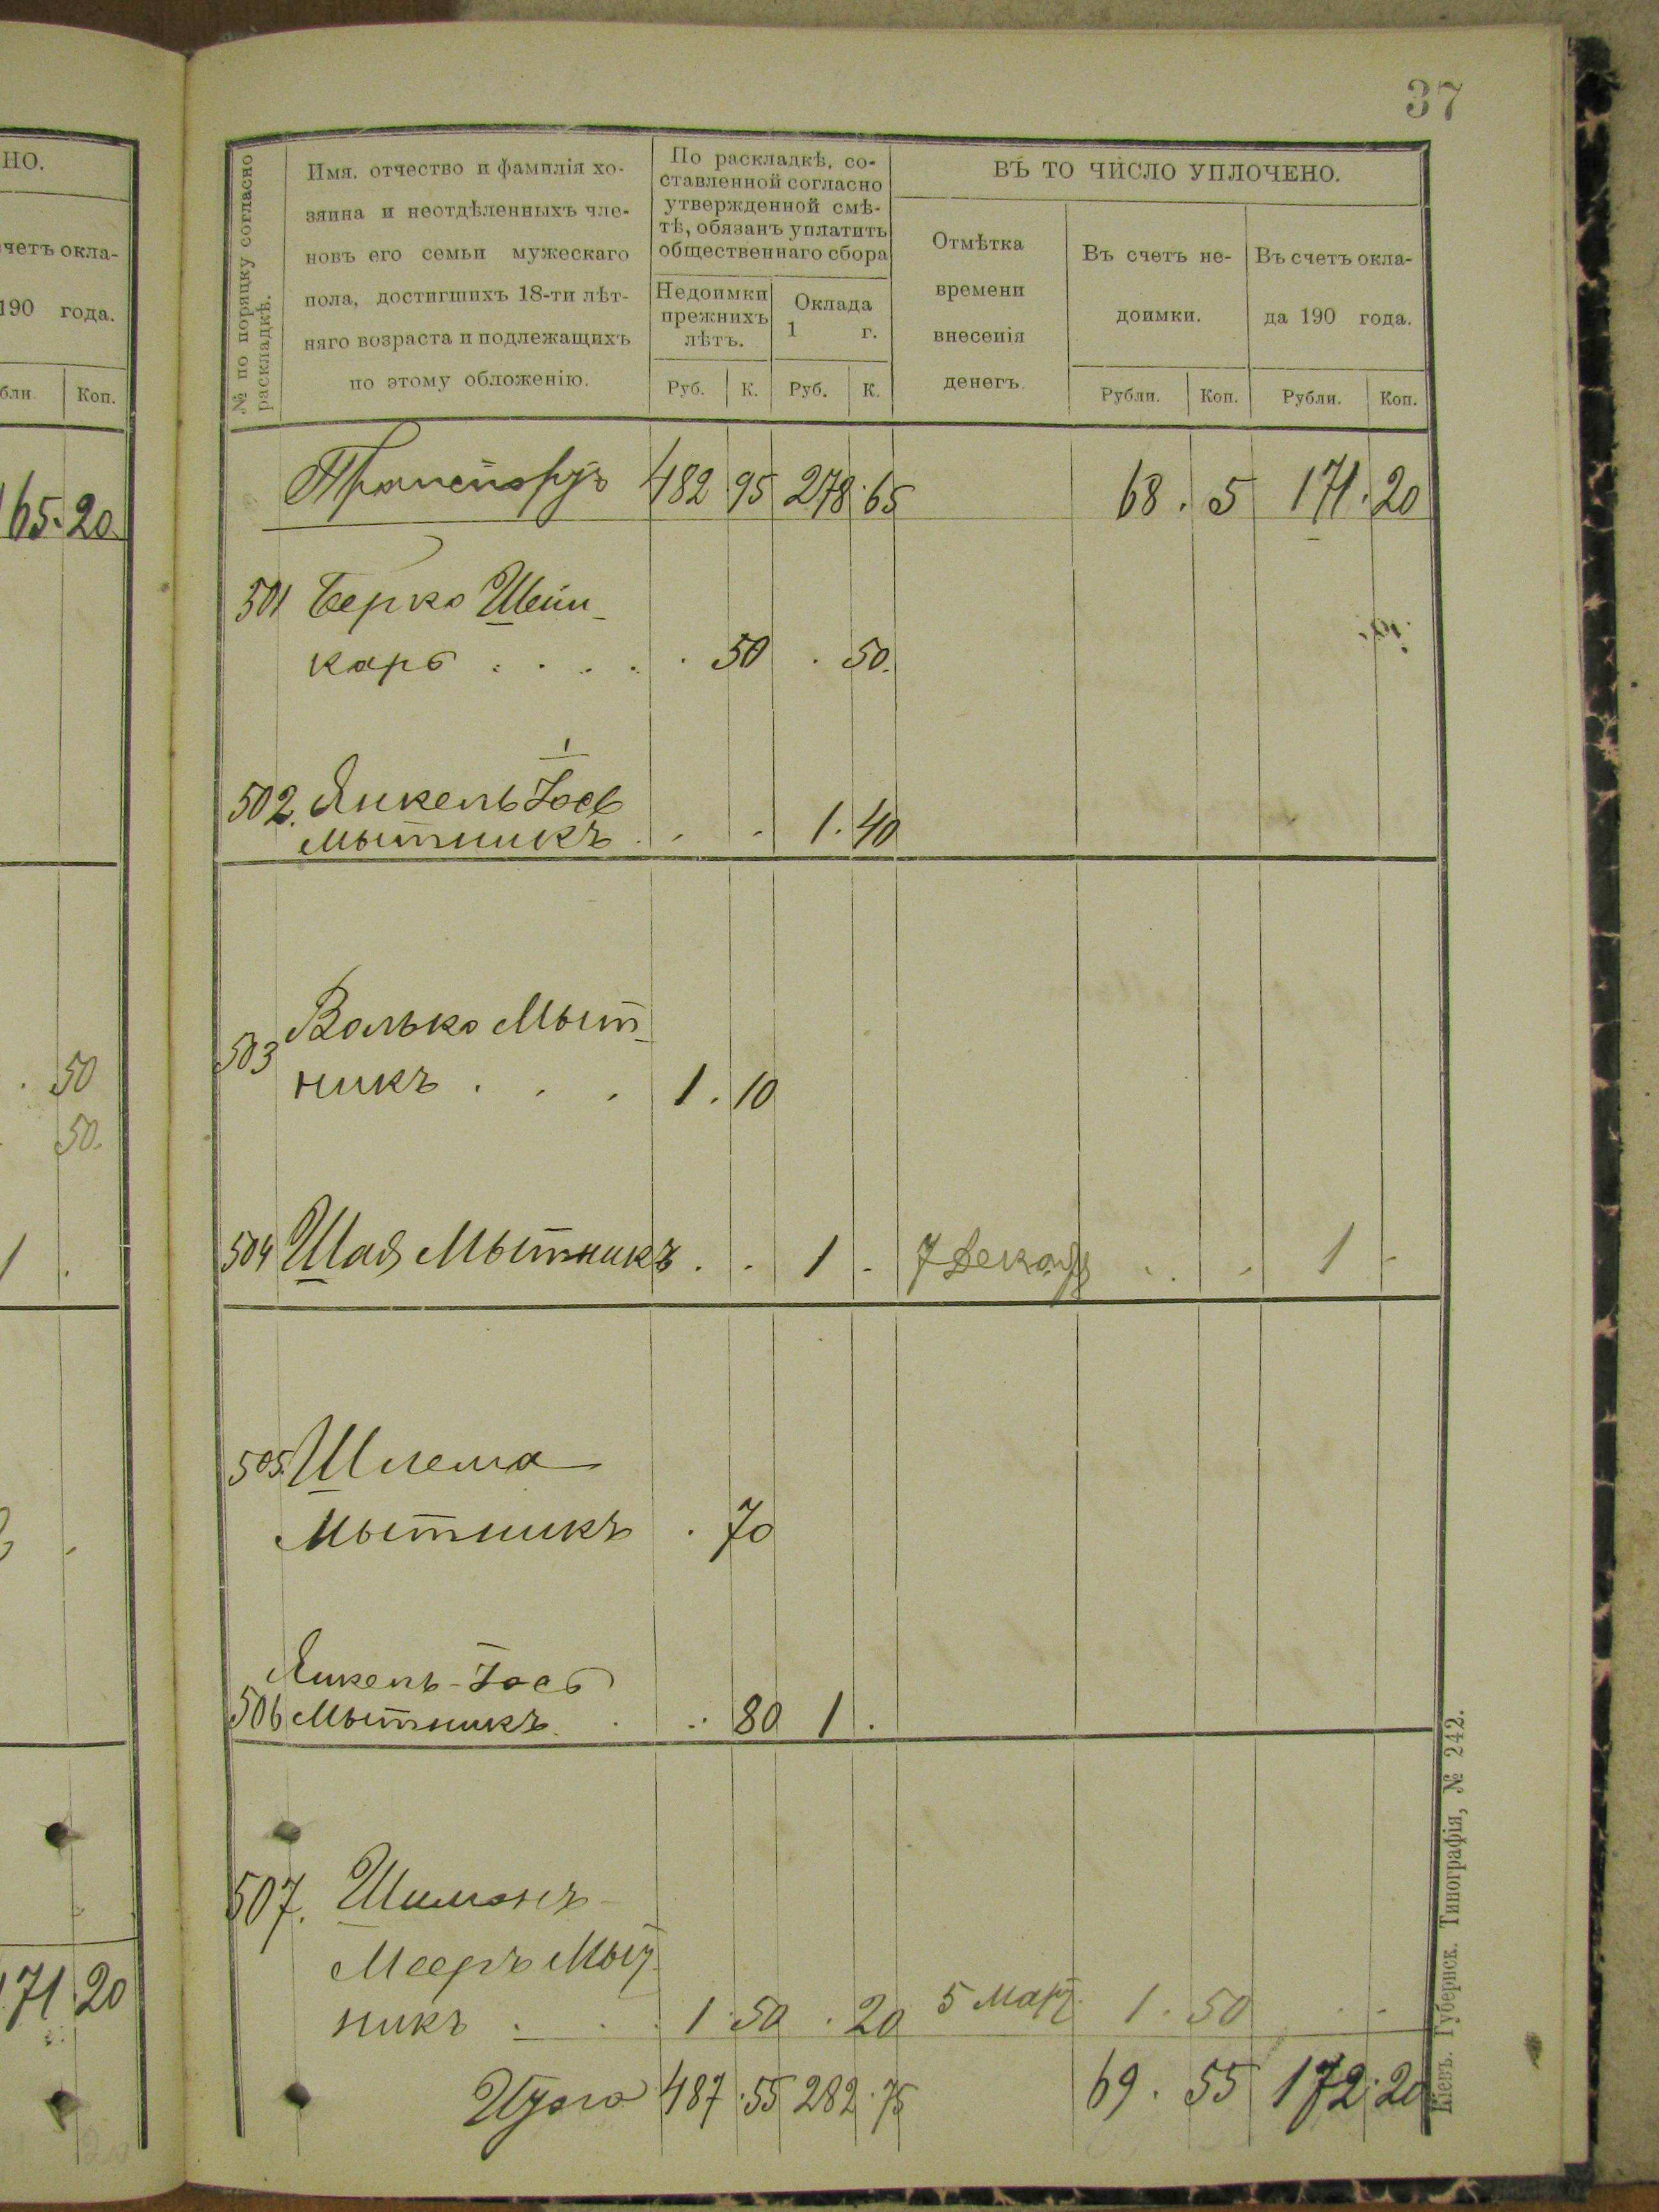 37
НО.
счетъ окла-
190 года.
бли. Коп.
165. 20.
. 50
. 50.
1 .
171 20
№ по порядку согласно
раскладкѣ.
Имя, отчество и фамилія хо-
зяина и неотдѣленныхъ чле-
новъ его семьи мужескаго
пола, достигшихъ 18-ти лѣт-
няго возраста и подлежащихъ
по этому обложенію.
По раскладкѣ, со-
ставленной согласно
утвержденной смѣ-
тѣ, обязанъ уплатить
общественнаго сбора
Недоимки
прежнихъ
лѣтъ.
Оклада
1 г.
Руб. К. Руб. К.
ВЪ ТО ЧИСЛО УПЛОЧЕНО.
Отмѣтка
времени
внесенія
денегъ.
Въ счетъ не-
доимки.
Въ счетъ окла-
да 190 года.
Рубли. Коп. Рубли. Коп.
Транспортъ 482 95 278.65 68. 5 171. 20
501 Берко Шейн-
каръ . . . . . 50 . 50.
502. Янкель Іось
Мытникъ . . . 1. 40
503 Волько Мыт-
никъ . . . 1. 10
504 Шая Мытникъ . . 1 . 7 Декаб . . 1 -
505. Шлема
Мытникъ . 70
Янкель-Іось
506 Мытникъ . . 80 1 .
507. Шимонъ-
Мееръ Мыт-
никъ . . . 1 50 . 20 5 март. 1. 50 . .
Итого 487.55 282.75 69. 55 172.20
Кіевъ. Губернск. Типографія, № 242.